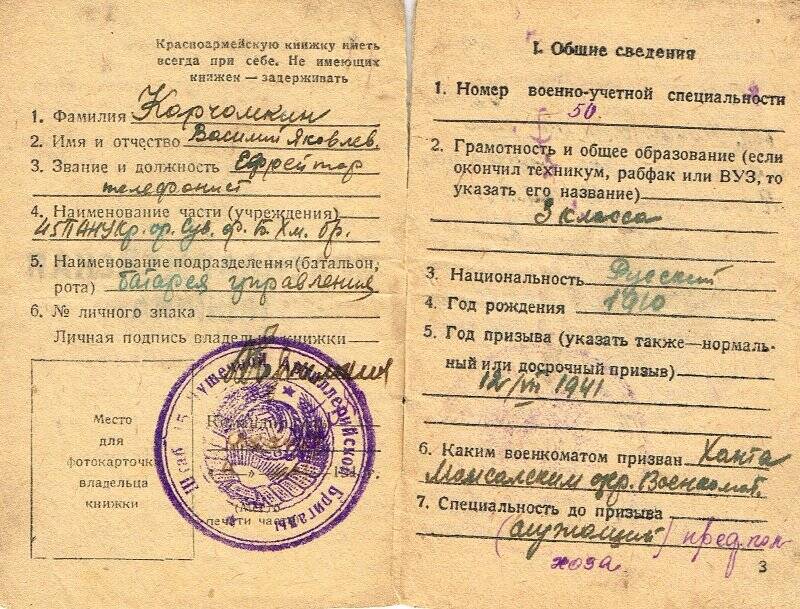 Красноармейскую книжку иметь
всегда при себе. Не имеющих
книжек — задерживать
1. Фамилия Корчомкин
2. Имя и отчество Василий Яковлев.
3. Звание и должность Ефрейтор
телефонист
4. Наименование части (учреждения)
45 ПАНУКр. ор. Сув. ор. Б. Хм. бр.
5. Наименование подразделения (батальон,
рота) батарея управления
6. № личного знака
Личная подпись владельца книжки
Место
для
фотокарточки
владельца
книжки
Штаб 45 Пушечной Артиллерийской Бригады
печати части)
I. Общие сведения
1. Номер военно-учетной специальности
50.
2. Грамотность и общее образование (если
окончил техникум, рабфак или ВУЗ, то
указать его название)
3 класса
3. Национальность Русский
4. Год рождения 1910
5. Год призыва (указать также—нормаль-
ный или досрочный призыв)
12/VII 1941
6. Каким военкоматом призван Ханта
Мансийским окр. Военкомат.
7. Специальность до призыва
(служащий) пред. кол
хоза
3